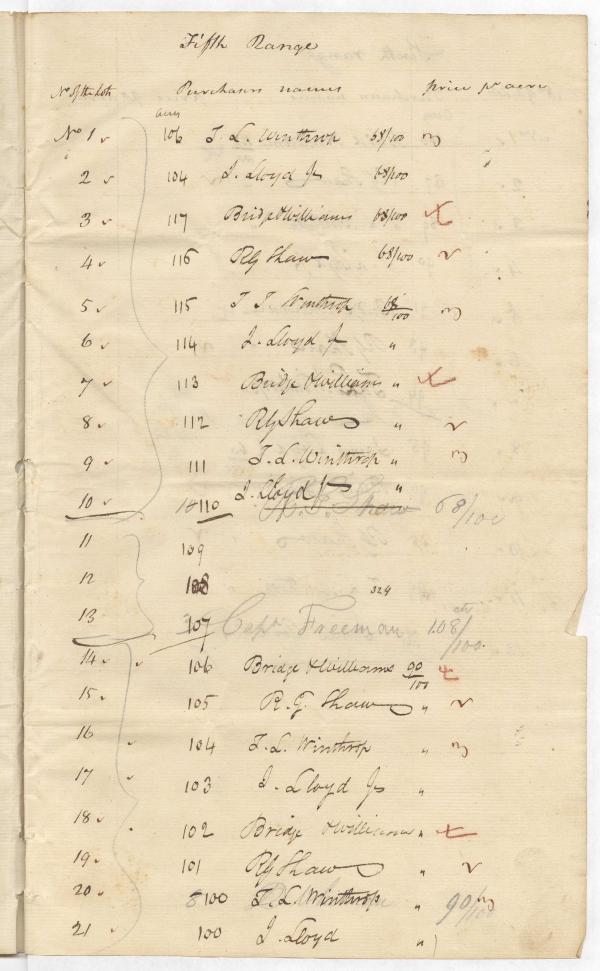 Fifth Range
No of the Lots Purchasers names price pr acre
acres
No 1 106 T. L. Winthrop 68/100
2 104 J. Lloyd Jr 68/100
3 117 Bridge & Williams 68/100
4 116 RG Shaw 68/100
5 115 T. L. Winthrop 68/100
6 114 J. Lloyd Jr "
7 113 Bridge & Williams "
8 112 RG Shaw "
9 111 T. L. Winthrop "
10 110 J. Lloyd Jr "
R. G. Shaw 68/100
11 109
12 108 324
13 107 Capt Freeman 1.08/100
14 106 Bridge & Williams 90/100
15 105 R. G. Shaw "
16 104 T. L. Winthrop "
17 103 J. Lloyd Jr "
18 102 Bridge & Williams "
19 101 RG Shaw "
20 8 100 T. L. Winthrop " 90/100
21 100 J. Lloyd "